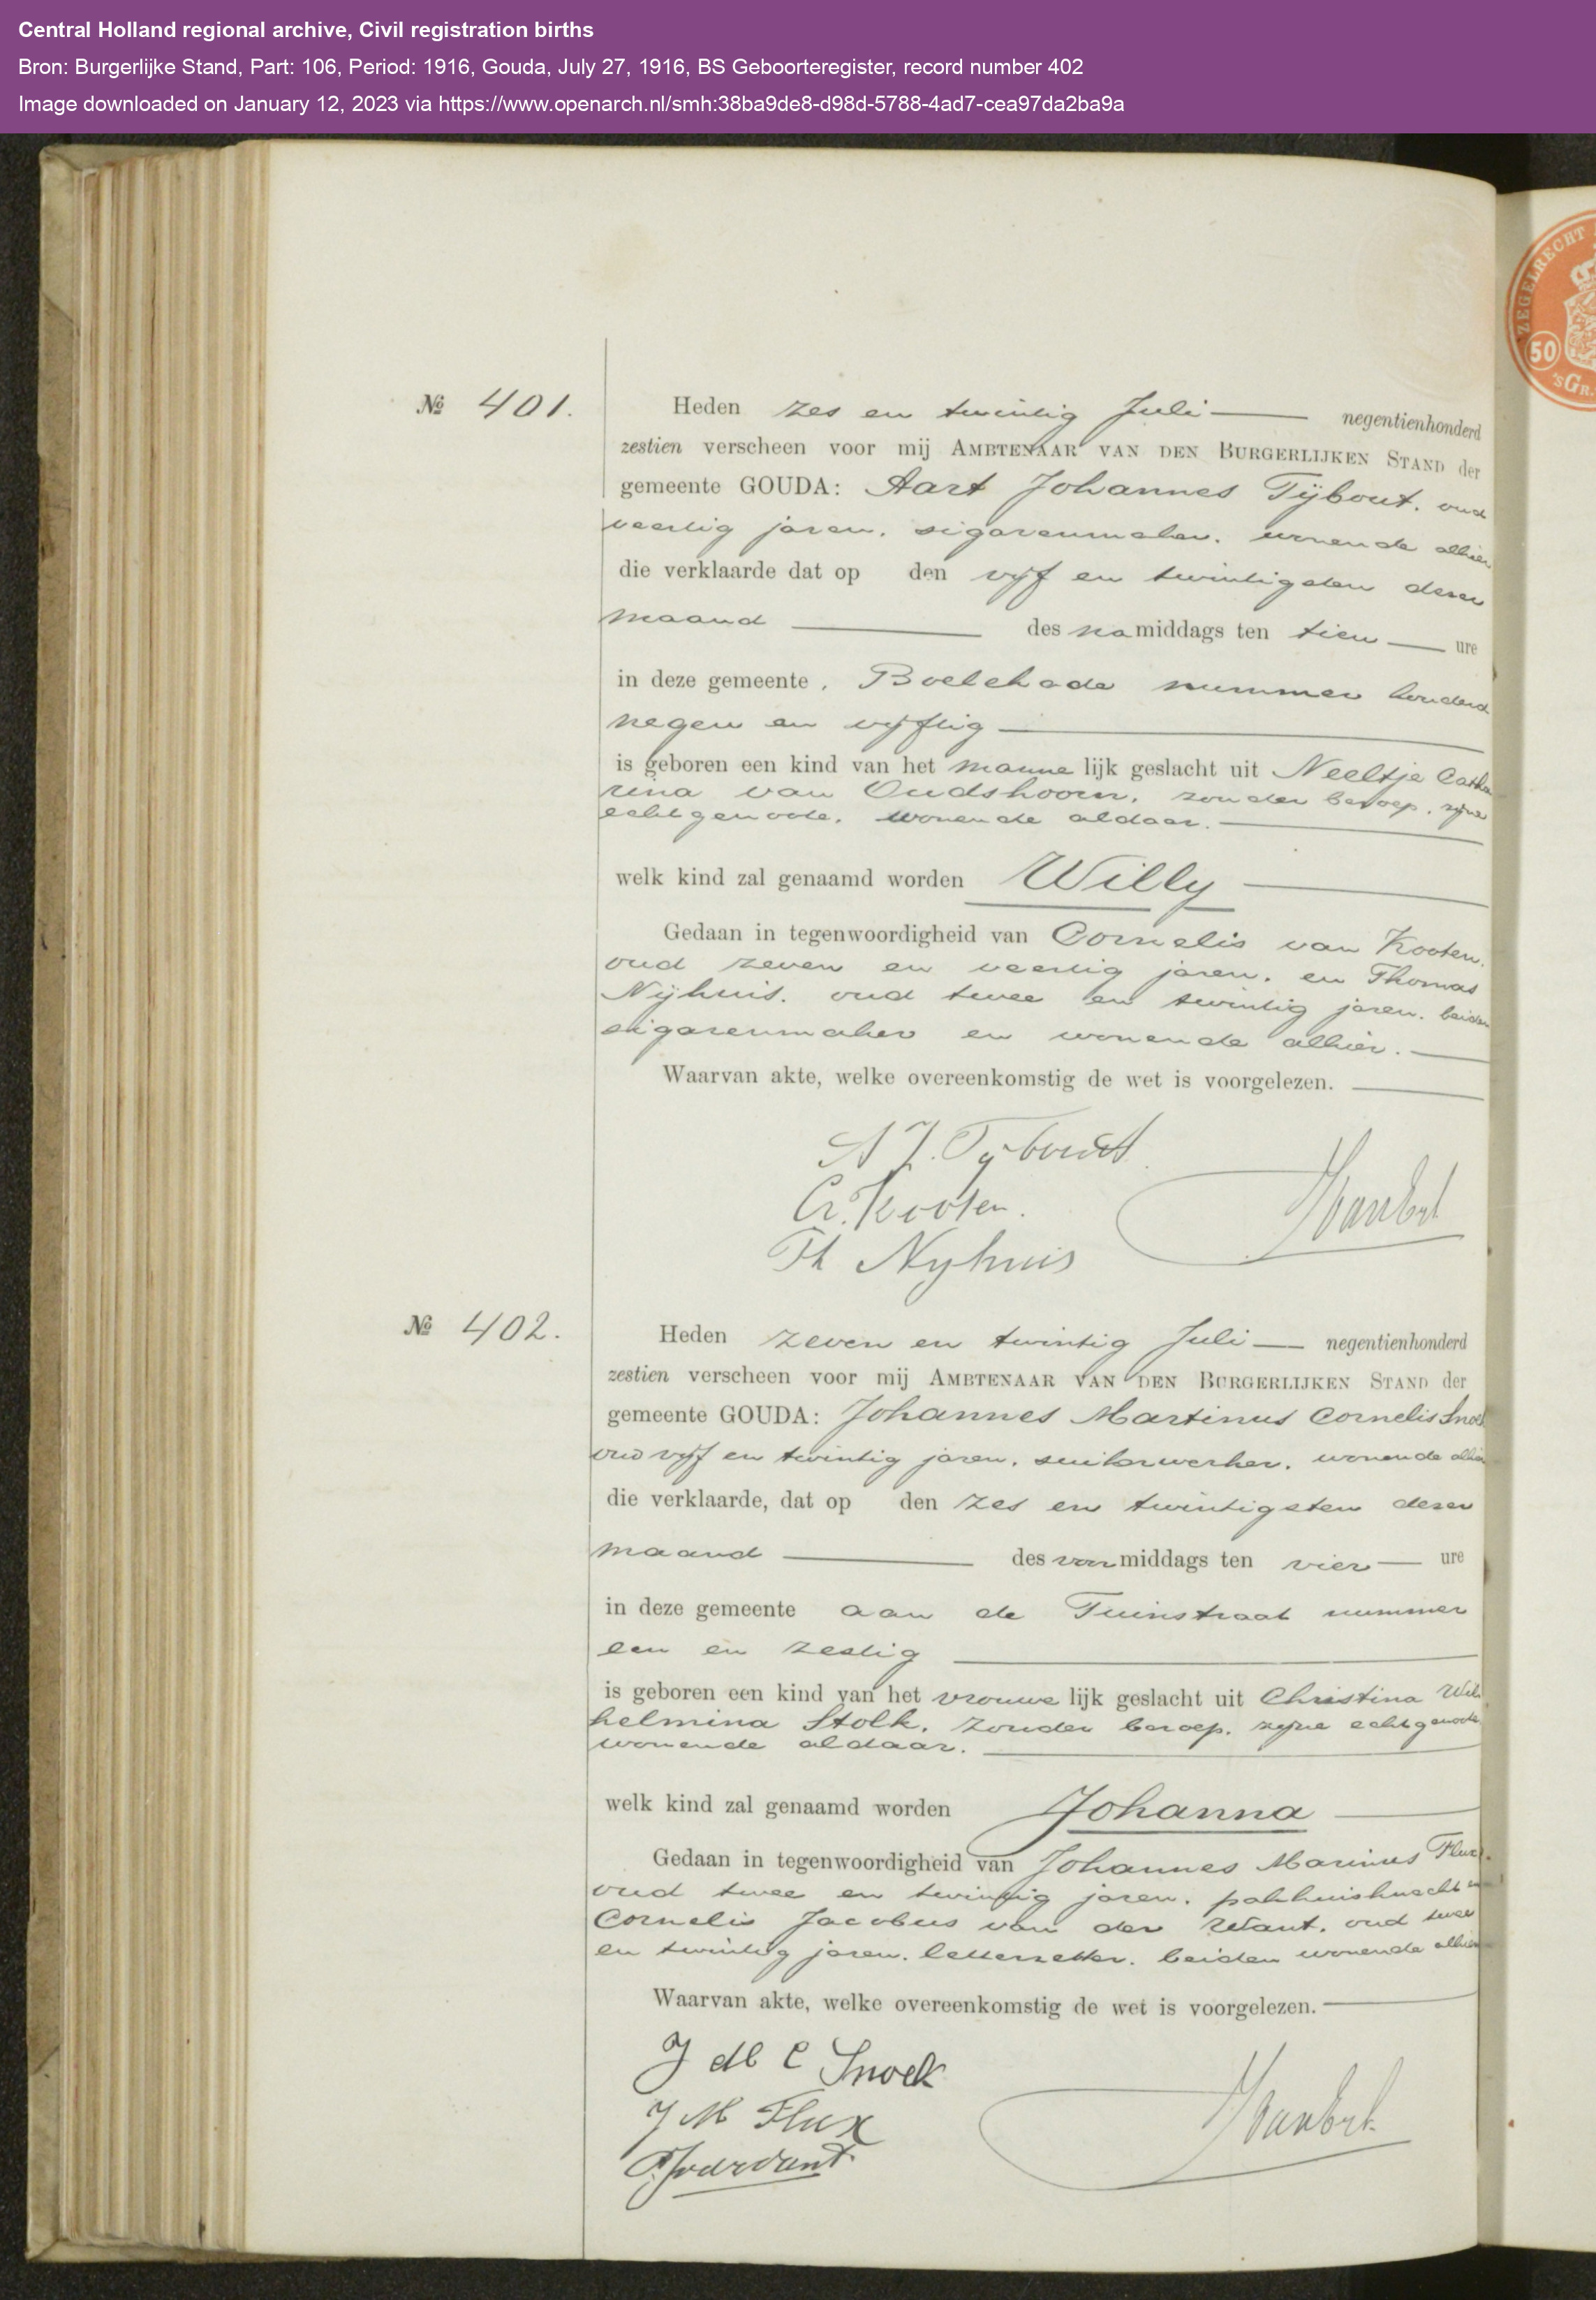 Central Holland regional archive, Civil registration births
Bron: Burgerlijke Stand, Part: 106, Period: 1916, Gouda, July 27, 1916, BS Geboorteregister, record number 402
Image downloaded on January 12, 2023 via https://www.openarch.nl/smh:38ba9de8-d98d-5788-4ad7-cea97da2ba9a
ZEGELRECHT
50
'sGR.
№ 401.
Heden zes en twintig Juli negentienhonderd
zestien verscheen voor mij AMBTENAAR VAN DEN BURGERLIJKEN STAND der
gemeente GOUDA: Aart Johannes Tijbout. oud
veertig jaren. sigarenmaker. wonende alhier
die verklaarde dat op den vijf en twintigsten dezer
maand des namiddags ten tien ure
in deze gemeente, Boelekade nummer honderd
negen en vijftig
is geboren een kind van het mannelijk geslacht uit Neeltje Catha
rina van Oudshoorn. zonder beroep. zijne
echtgenoote. wonende aldaar.
welk kind zal genaamd worden Willy
Gedaan in tegenwoordigheid van Cornelis van Kooten.
oud zeven en veertig jaren. en Thomas
Nijhuis. oud twee en twintig jaren. beiden
sigarenmaker en wonende alhier.
Waarvan akte, welke overeenkomstig de wet is voorgelezen.
A J. Tybout
Cv. Kooten.
Th Nyhuis
№ 402.
Heden zeven en twintig Juli negentienhonderd
zestien verscheen voor mij AMBTENAAR VAN DEN BURGERLIJKEN STAND der
gemeente GOUDA: Johannes Martinus Cornelis Snoek
oud vijf en twintig jaren. suikerwerker. wonende alhier
die verklaarde, dat op den zes en twintigsten dezer
maand des voormiddags ten vier ure
in deze gemeente aan de Tuinstraat nummer
een en zestig
is geboren een kind van het vrouwelijk geslacht uit Christina Wil
helmina Stolk. zonder beroep. zijne echtgenoote
wonende aldaar.
welk kind zal genaamd worden Johanna
Gedaan in tegenwoordigheid van Johannes Marinus Flux.
oud twee en twintig jaren. pakhuisknecht en
Cornelis Jacobus van der Want. oud twee
en twintig jaren. letterzetter. beiden wonende alhier
Waarvan akte, welke overeenkomstig de wet is voorgelezen.
J M C Snoek
J M Flux